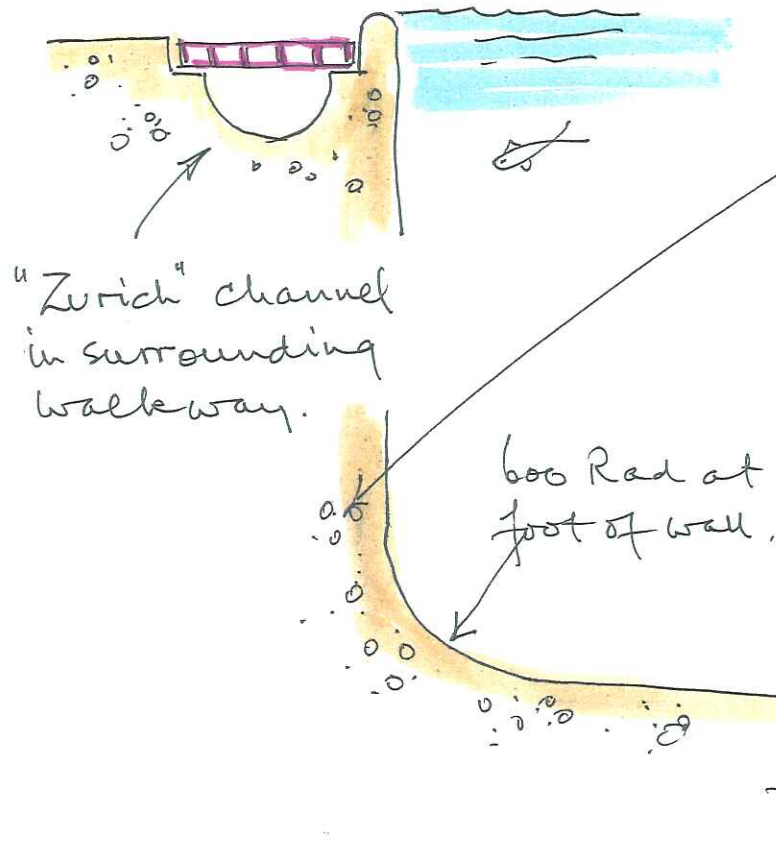 "Zurich" channel
in surrounding
walkway.
600 Rad at
foot of wall.